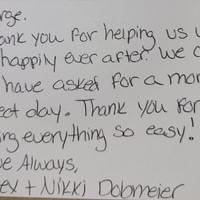 rge.
ank you for helping us w
happily ever after. We c
have asked for a mor
ect day. Thank you for
ing everything so easy!
e Always,
ex + Nikki Dobmeier